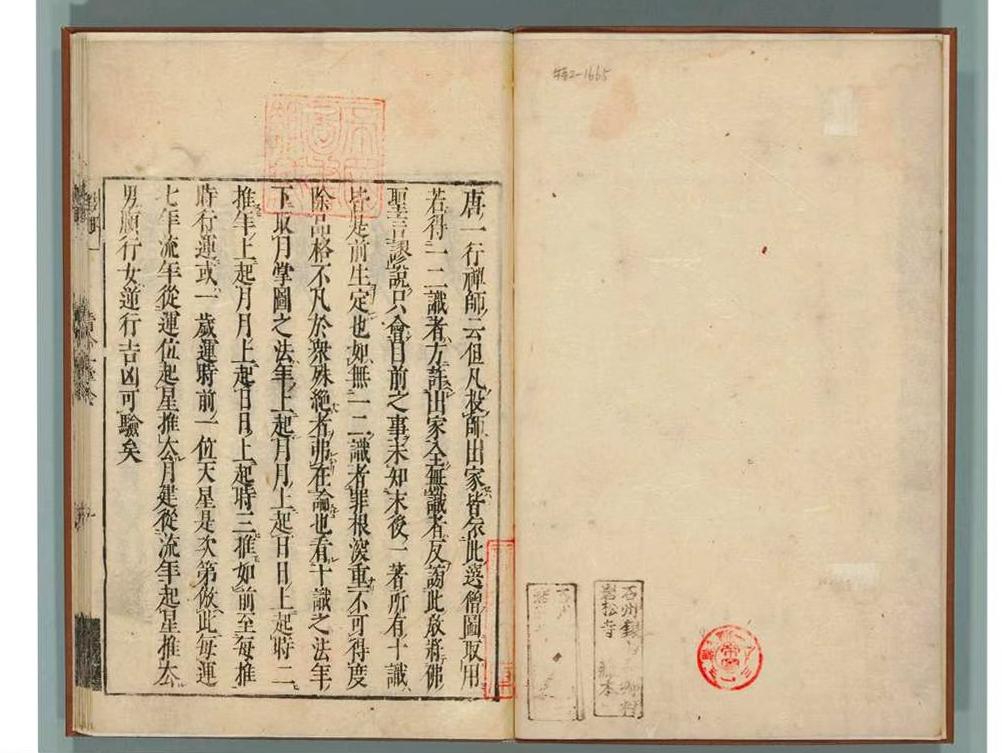 特2-1665
唐一行禪師云但凡投師出家皆依此選僧圖取用
若得一二識者方許出家全無識者反謗此放將佛
聖言謬説只會目前之事未知末後一著所有十識
皆是前生定也如無一二識者罪根深重不可得度
除品格不凡於衆殊絶者弗在論也看十識之法年
下取月掌圖之法年上起月月上起日日上起時二
推年上起月月上起日日上起時三推如前至每推
時行運或一歲運時前一位天星是次第倣此每運
七年流年從運位起星推太月建從流年起星推太
男順行女逆行吉凶可驗矣
石州
岩松寺